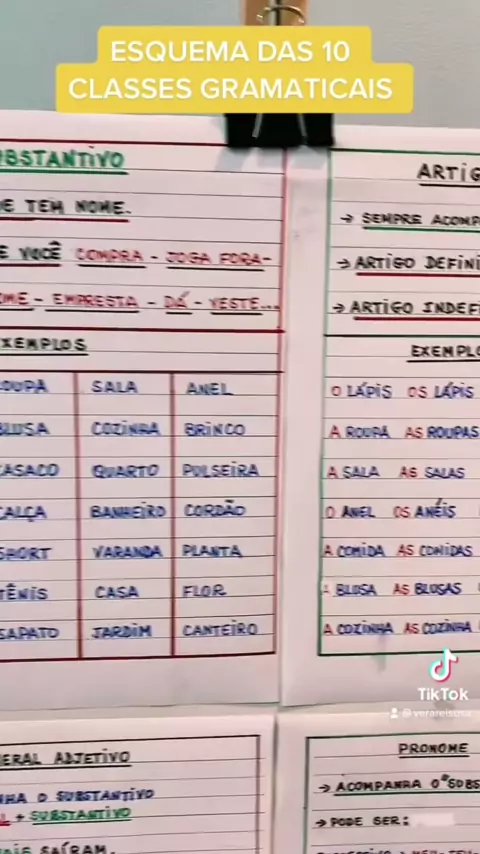 ESQUEMA DAS 10
CLASSES GRAMATICAIS
UBSTANTIVO
E TEM NOME.
E VOCÊ COMPRA - JOGA FORA -
OME - EMPRESTA - DÁ - VESTE...
XEMPLOS
ROUPA SALA ANEL
BLUSA COZINHA BRINCO
CASACO QUARTO PULSEIRA
CALÇA BANHEIRO CORDÃO
SHORT VARANDA PLANTA
TÊNIS CASA FLOR
SAPATO JARDIM CANTEIRO
ARTIG
→ SEMPRE ACOMP
→ ARTIGO DEFINI
→ ARTIGO INDEFI
EXEMPLO
O LÁPIS OS LÁPIS
A ROUPA AS ROUPAS
A SALA AS SALAS
O ANEL OS ANÉIS
A COMIDA AS COMIDAS
A BLUSA AS BLUSAS
A COZINHA AS COZINHA
TikTok
ERAL ADJETIVO
NHA O SUBSTANTIVO
+ SUBSTANTIVO
SAÍRAM.
PRONOME
→ ACOMPANHA O SUBS
→ PODE SER: